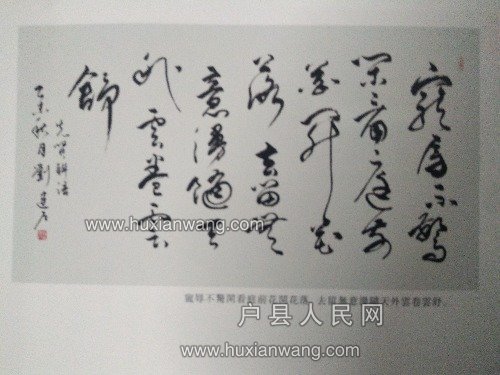 寵辱不驚
閑看庭前
花開花
落去留無
意漫隨天
外雲卷雲
舒
先賢聯語
乙未秋月劉建
www.huxianwang.com
寵辱不驚閑看庭前花開花落，去留無意漫隨天外雲卷雲舒。
户县人民网
www.huxianwang.com